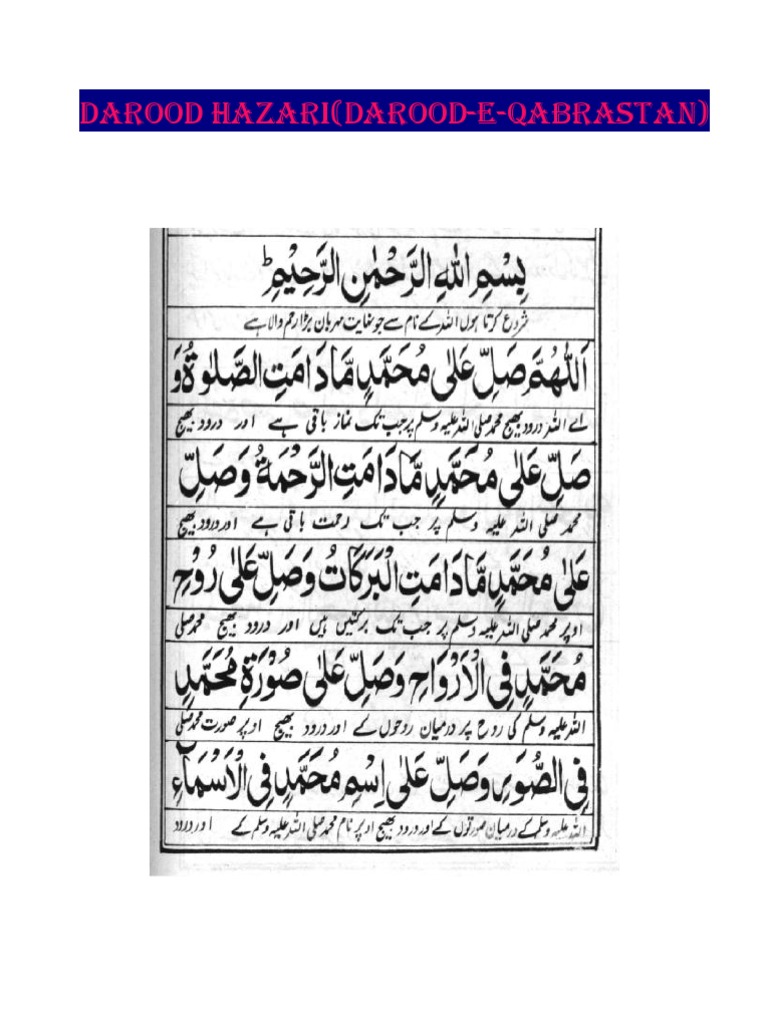 DAROOD HAZARI(DAROOD-E-QABRASTAN)
بِسْمِ اللهِ الرَّحْمٰنِ الرَّحِيْمِ ط
شروع کرتا ہوں اللہ کے نام سے جو نہایت مہربان بڑا رحم والا ہے
اَللّٰهُمَّ صَلِّ عَلٰى مُحَمَّدٍ مَّا دَامَتِ الصَّلٰوةُ وَ
اے اللہ درود بھیج محمد صلی اللہ علیہ وسلم پر جب تک نماز باقی ہے اور درود بھیج
صَلِّ عَلٰى مُحَمَّدٍ مَّا دَامَتِ الرَّحْمَةُ وَصَلِّ
محمد صلی اللہ علیہ وسلم پر جب تک رحمت باقی ہے اور درود بھیج
عَلٰى مُحَمَّدٍ مَّا دَامَتِ الْبَرَكَاتُ وَصَلِّ عَلٰى رُوْحِ
اوپر محمد صلی اللہ علیہ وسلم پر جب تک برکتیں ہیں اور درود بھیج محمد صلی
مُحَمَّدٍ فِى الْاَرْوَاحِ وَصَلِّ عَلٰى صُوْرَةِ مُحَمَّدٍ
اللہ علیہ وسلم کی روح پر درمیان روحوں کے اور درود بھیج اوپر صورت محمد صلی
فِى الصُّوَرِ وَصَلِّ عَلٰى اِسْمِ مُحَمَّدٍ فِى الْاَسْمَآءِ
اللہ علیہ وسلم کے درمیان صورتوں کے اور درود بھیج اوپر نام محمد صلی اللہ علیہ وسلم کے اور درود